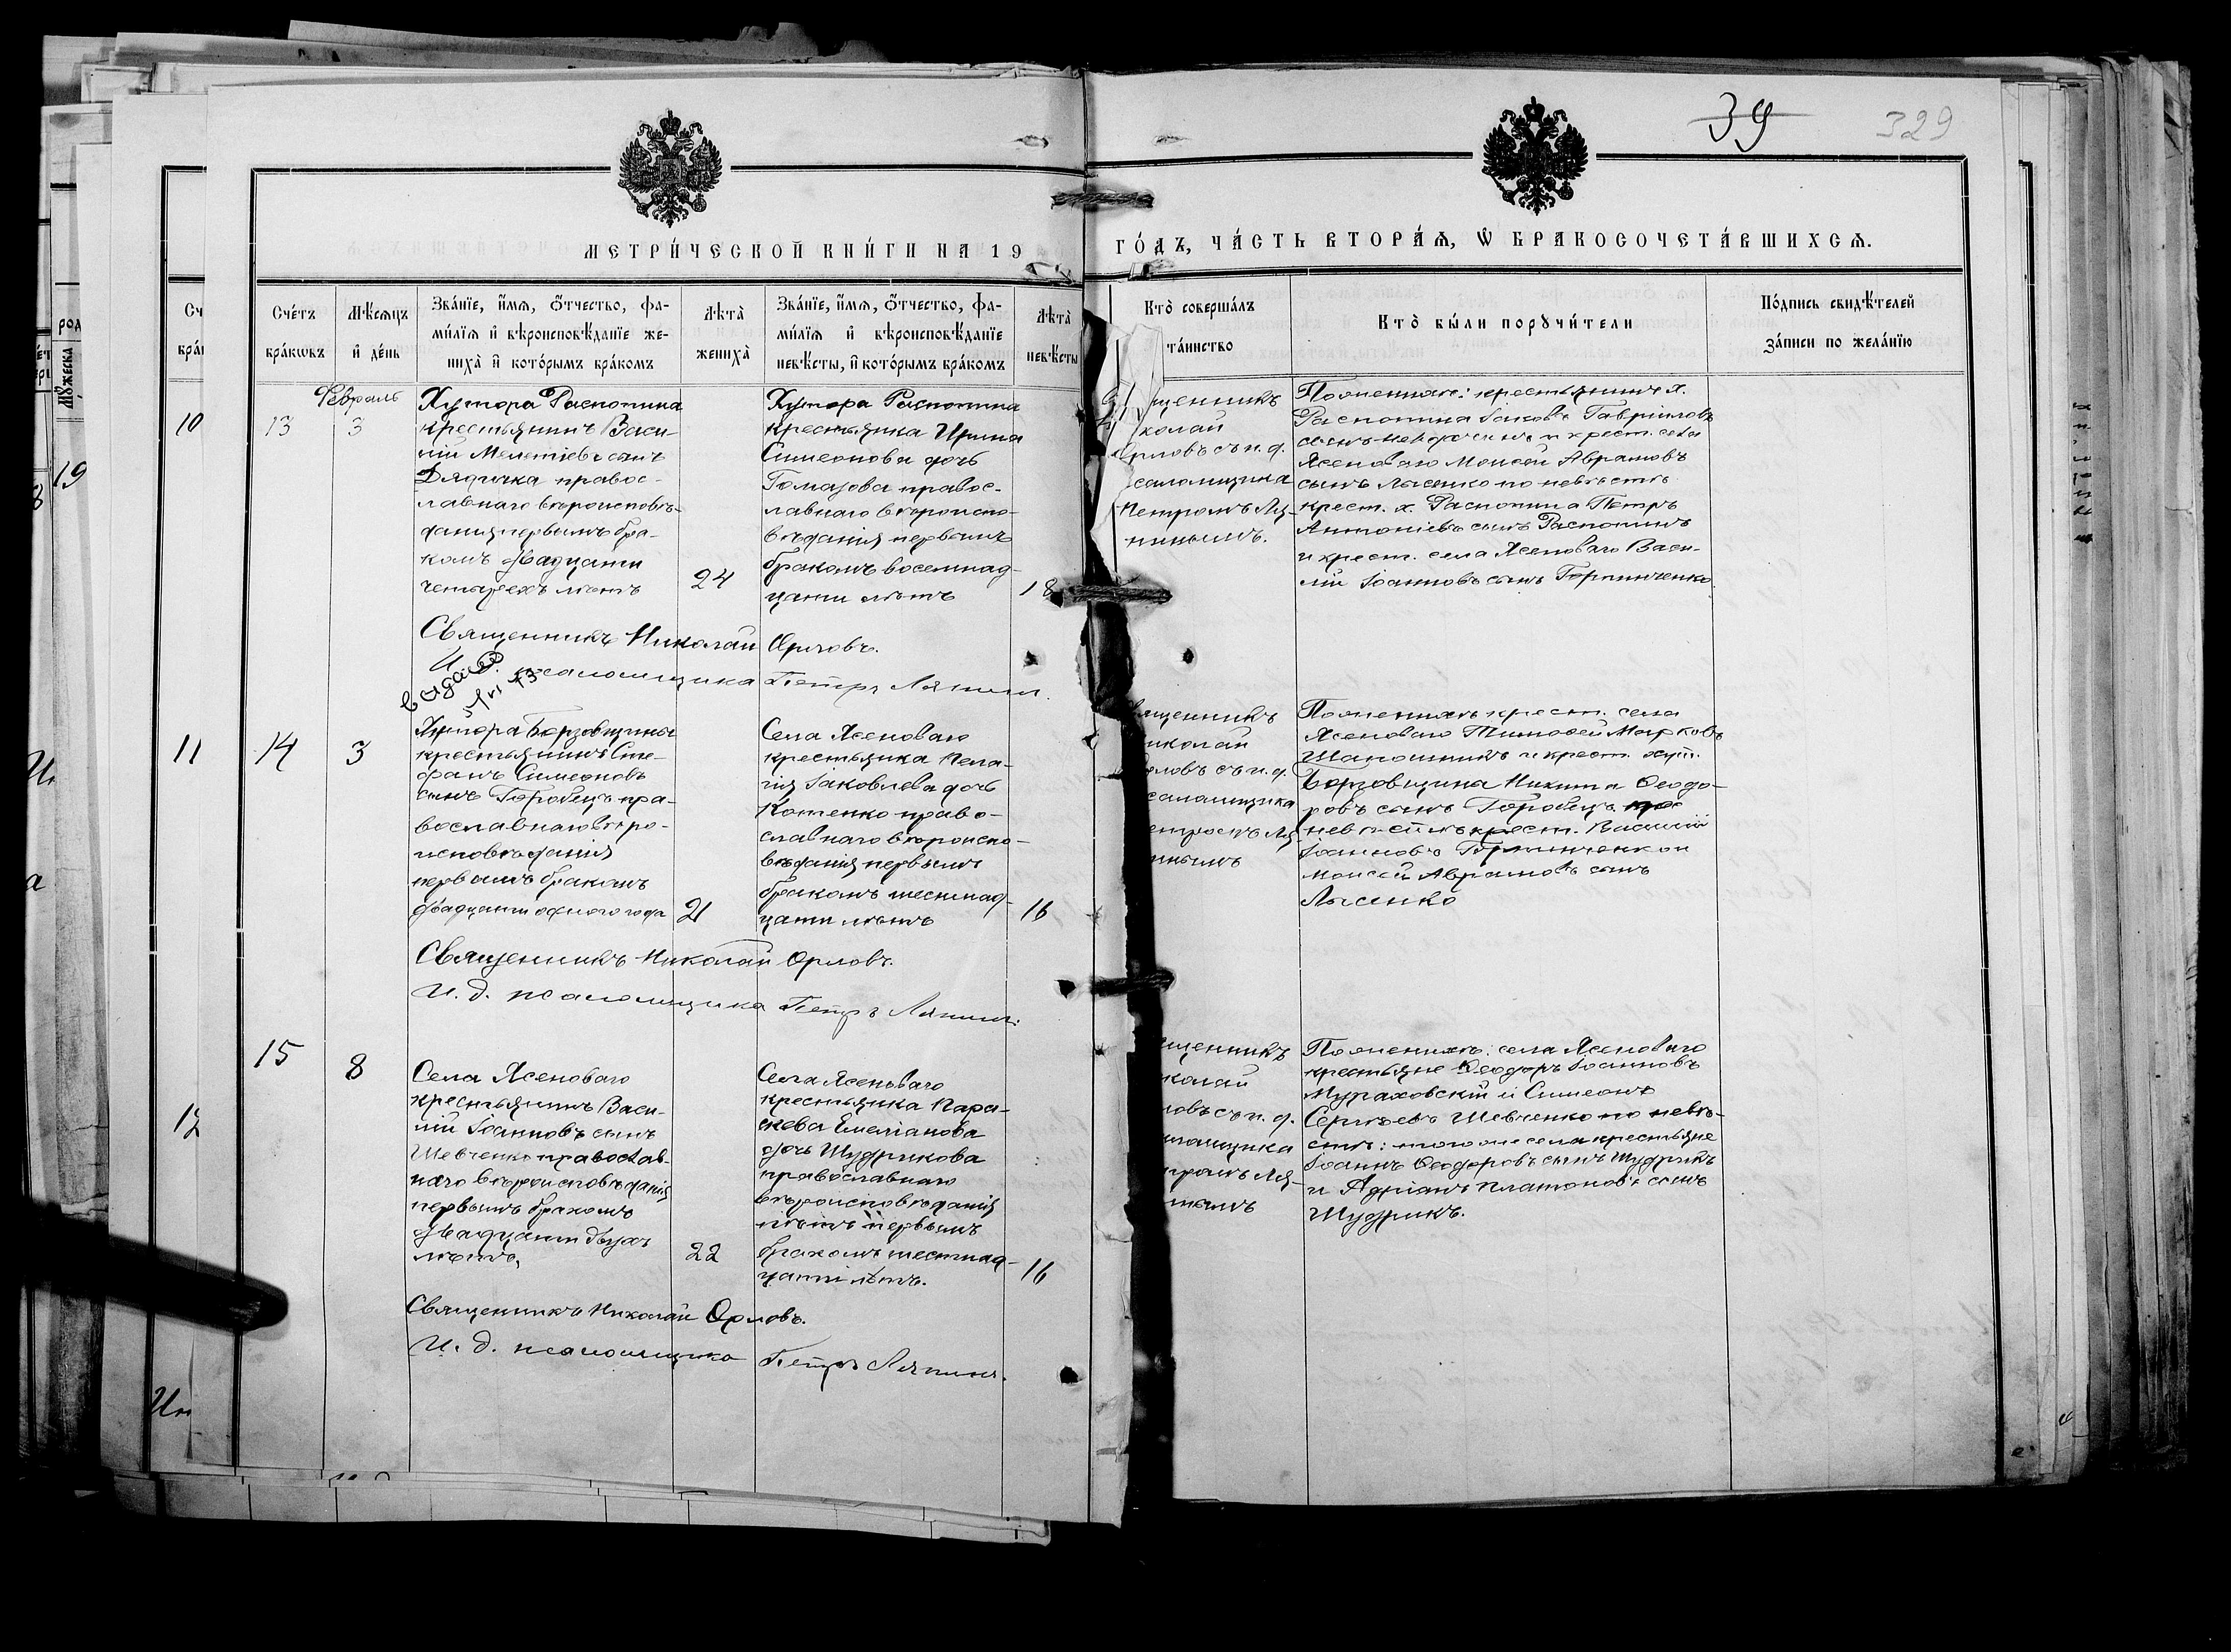 39
329
МЕТРИ́ЧЕСКОЙ КНИ́ГИ НА 19
ГО́ДЪ, ЧА́СТЬ ВТОРА́Ѧ, Ѡ БРАКОСОЧЕТА́ВШИХСѦ.
Сче́тъ
бра́кѡвъ
Мѣ́сѧцъ
и҆ де́нь
Зва́нїе, и҆́мѧ, ѻ҆́тчество, фа-
ми́лїѧ и҆ вѣроисповѣ́данїе же-
ниха̀ и҆ кото́рымъ бра́комъ
Лѣ́та̀
жениха̀
Зва́нїе, и҆́мѧ, ѻ҆́тчество, фа-
ми́лїѧ и҆ вѣроисповѣ́данїе
невѣ́сты, и҆ кото́рымъ бра́комъ
Лѣ́та̀
невѣ́сты
Кто̀ соверша́лъ
та́инство
Кто̀ бы́ли порꙋчи́тели
По́дпись свидѣ́телей
за́писи по жела́нїю
Февраль
13
3
Хутора Распопина
крестьянинъ Васи-
лій Мелетіевъ сынъ
Дядичка правос-
лавнаго вѣроисповѣ-
данія первымъ бра-
комъ двадцати
четырехъ лѣтъ
24
Хутора Распопина
крестьянка Ирина
Симеонова дочь
Гомазова правос-
лавнаго вѣроиспо-
вѣданія первымъ
бракомъ восемнад-
цати лѣтъ
18
щенникъ
колай
рловъ съ и. д.
саломщика
Петромъ Ля-
пинымъ.
По женихѣ: крестьянинъ х.
Распопина Іаковъ Гавріиловъ
сынъ и крест. села
Ясеноваго Моисей Аврамовъ
сынъ Лысенко по невѣстѣ
крест. х. Распопина Петръ
Антоніевъ сынъ Распопинъ
и крест. села Ясеноваго Васи-
лій Іоанновъ сынъ Горпинченко
Священникъ Николай Орловъ.
И. д. псаломщика Петръ Ляпинъ.
14
3
Хутора Борзовщины
крестьянинъ Сте-
фанъ Симеоновъ
сынъ Горобецъ пра-
вославнаго вѣро-
исповѣданія
первымъ бракомъ
двадцати одного года
21
Села Ясеноваго
крестьянка Пела-
гія Іаковлева дочь
Котенко право-
славнаго вѣроиспо-
вѣданія первымъ
бракомъ шестнад-
цати лѣтъ
16
вященникъ
иколай
рловъ съ и. д.
саломщика
етромъ Ля-
пинымъ
По женихѣ крест. села
Ясеноваго Тимофей Марковъ
Шапошникъ и крест. хут.
Борзовщина Никита Ѳеодо-
ровъ сынъ Горобецъ по
невѣстѣ крест. Василій
Іоанновъ Горпинченко и
Моисей Аврамовъ сынъ
Лысенко
Священникъ Николай Орловъ.
И. д. псаломщика Петръ Ляпинъ.
15
8
Села Ясеноваго
крестьянинъ Васи-
лій Іоанновъ сынъ
Шевченко православ-
наго вѣроисповѣданія
первымъ бракомъ
двадцати двухъ
лѣтъ,
22
Села Ясеноваго
крестьянка Пара-
скева Емеліанова
дочь Шудрикова
православнаго
вѣроисповѣданія
лѣтъ первымъ
бракомъ шестнад-
цати лѣтъ.
16
щенникъ
колай
ловъ съ и. д.
аломщика
тромъ Ля-
пинымъ
По женихѣ: села Ясеноваго
крестьяне Ѳеодоръ Іоанновъ
Мураховскій и Симеонъ
Сергѣевъ Шевченко по невѣ-
стѣ: того же села крестьяне
Іоаннъ Ѳеодоровъ сынъ Шудрикъ
и Адріанъ Платоновъ сынъ
Шудрикъ.
Священникъ Николай Орловъ.
И. д. псаломщика Петръ Ляпинъ.
10
11
12
19